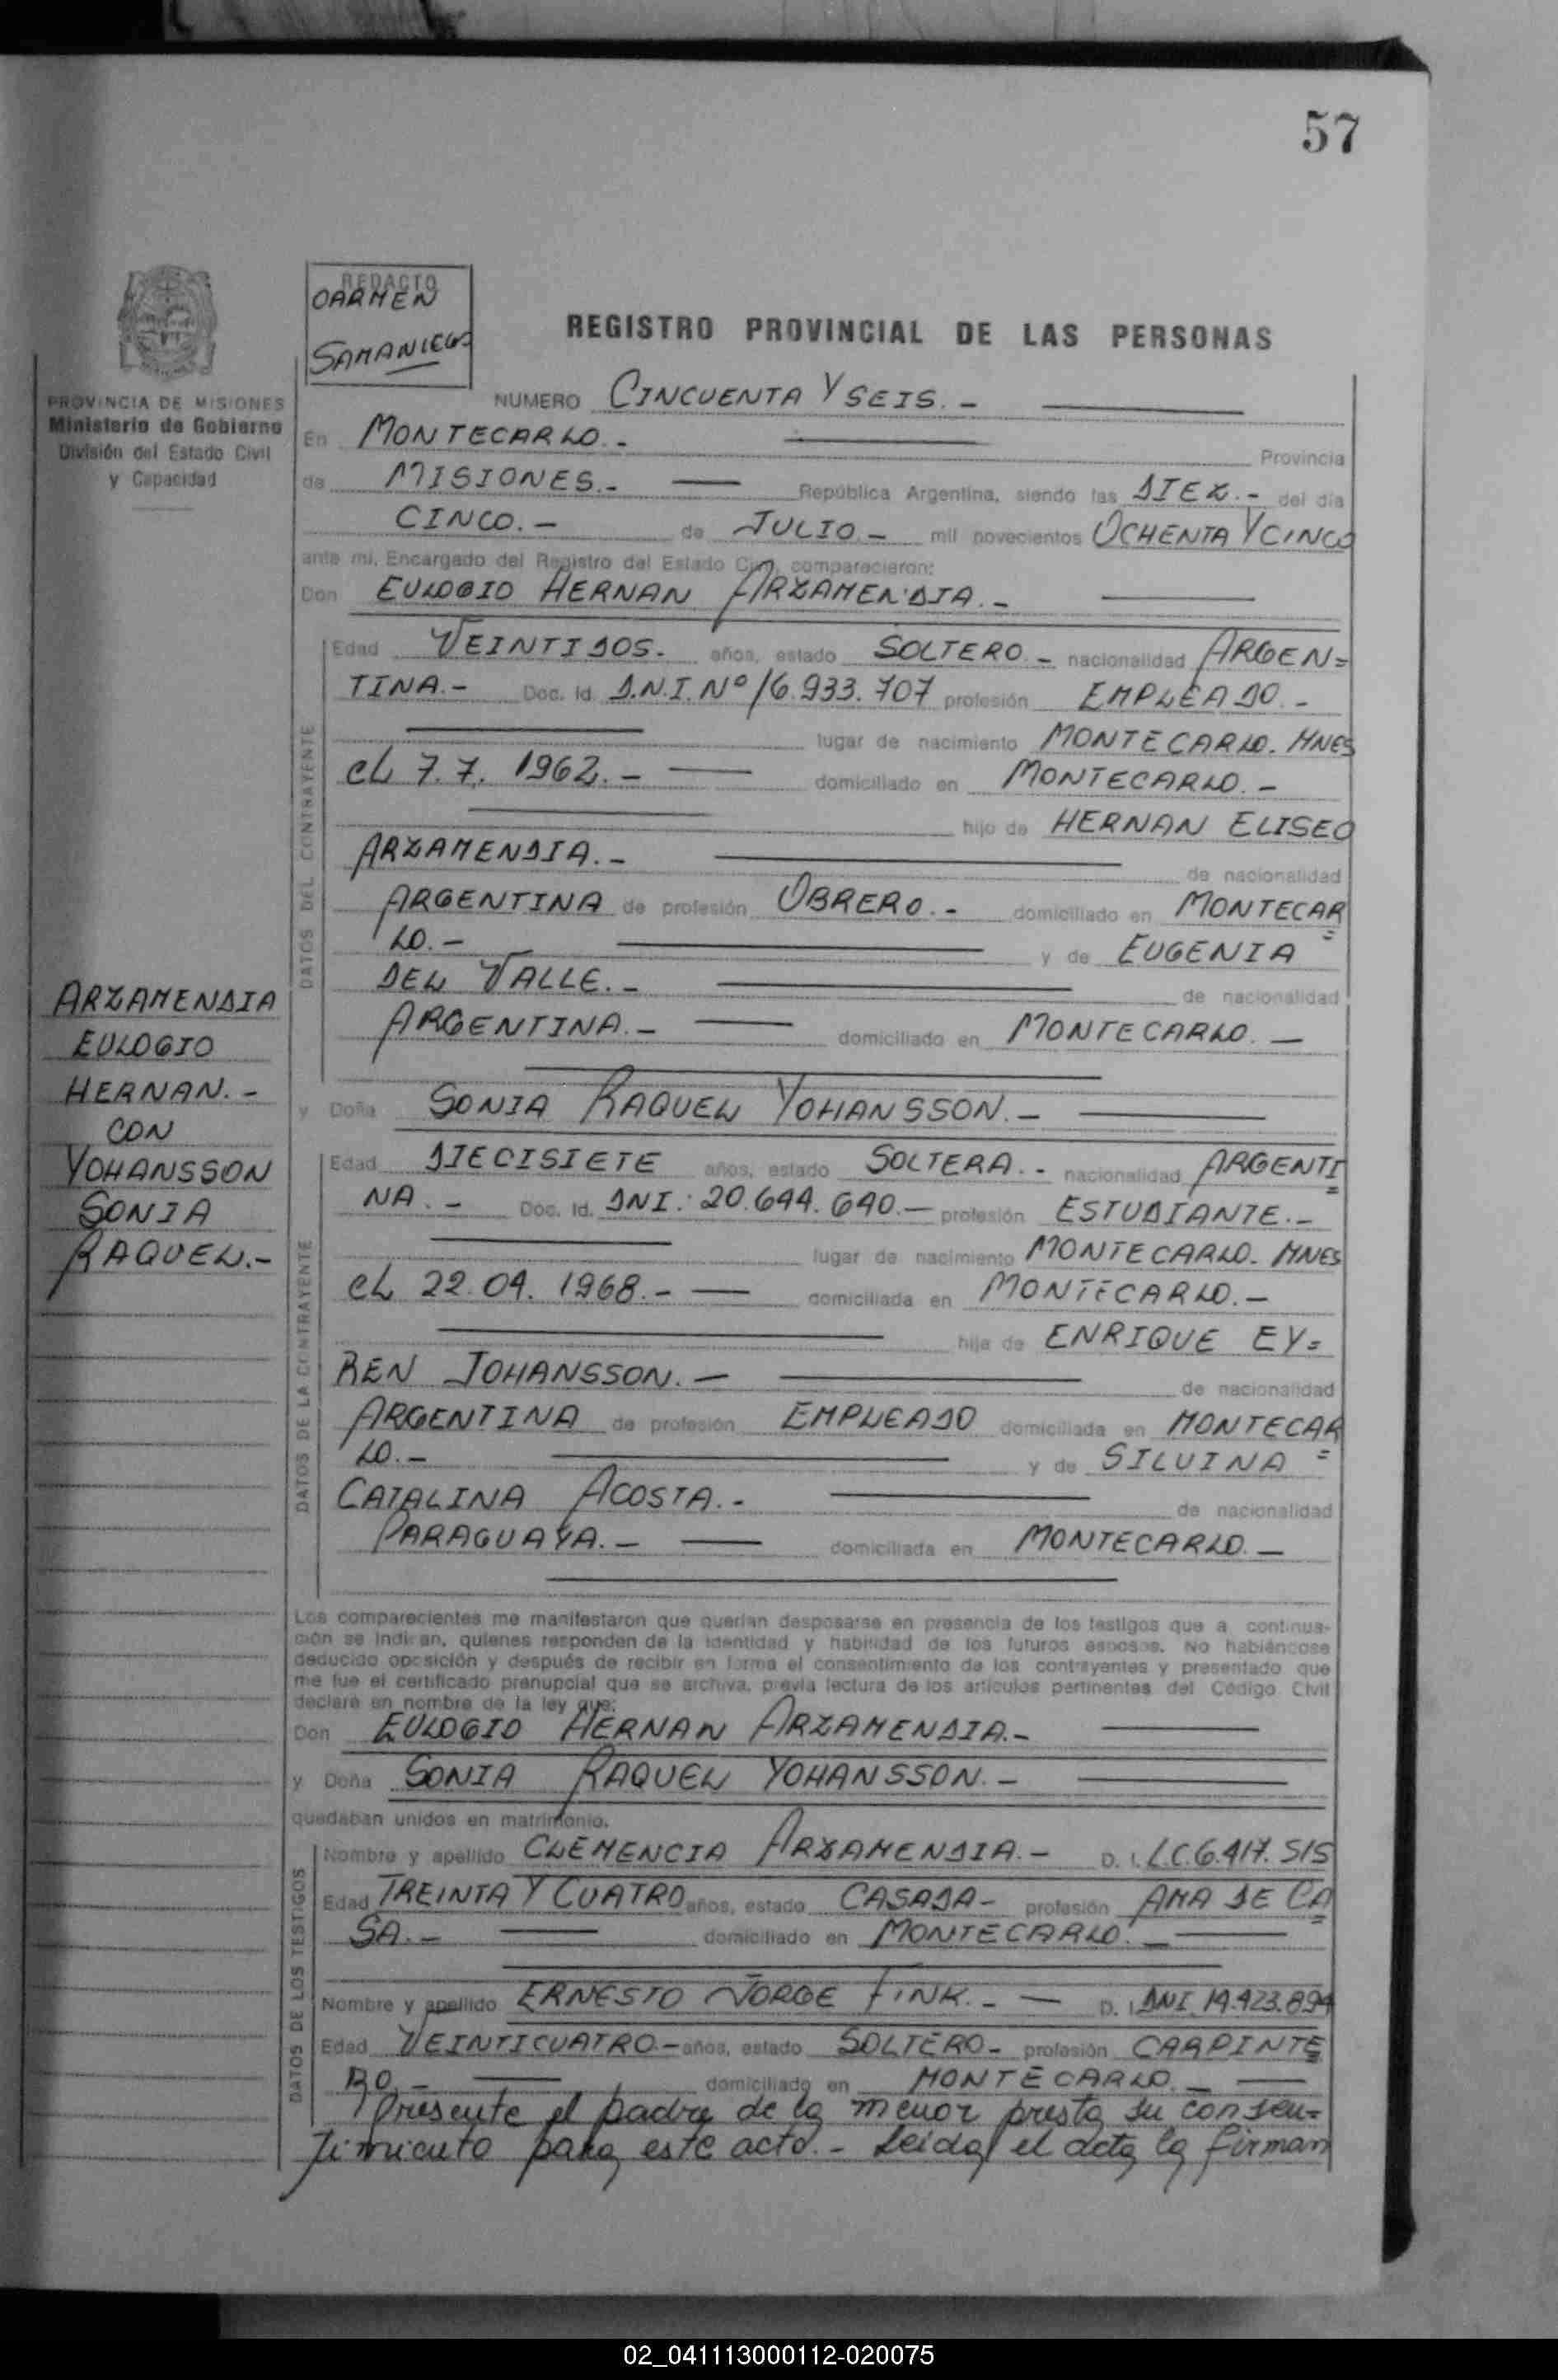 57
REDACTO
CARMEN
SAMANIEGO
REGISTRO PROVINCIAL DE LAS PERSONAS
PROVINCIA DE MISIONES
Ministerio de Gobierno
División del Estado Civil
y Capacidad
NUMERO CINCUENTA Y SEIS.-
En MONTECARLO.-
Provincia
de MISIONES.- República Argentina, siendo las DIEZ.- del día
CINCO.- de JULIO.- mil novecientos OCHENTA Y CINCO
ante mí, Encargado del Registro del Estado Civil, comparecieron:
Don EULOGIO HERNAN ARZAMENDIA.-
DATOS DEL CONTRAYENTE
Edad VEINTIDOS. años, estado SOLTERO.- nacionalidad ARGEN=
TINA.- Doc. Id. D.N.I. Nº 16.933.707 profesión EMPLEADO.-
lugar de nacimiento MONTECARLO. MNES
el 7.7.1962.- domiciliado en MONTECARLO.-
hijo de HERNAN ELISEO
ARZAMENDIA.- de nacionalidad
ARGENTINA de profesión OBRERO.- domiciliado en MONTECAR=
LO.- y de EUGENIA
DEL VALLE.- de nacionalidad
ARGENTINA.- domiciliado en MONTECARLO.-
ARZAMENDIA
EULOGIO
HERNAN.-
CON
YOHANSSON
SONIA
RAQUEL.-
y Doña SONIA RAQUEL YOHANSSON.-
DATOS DE LA CONTRAYENTE
Edad DIECISIETE años, estado SOLTERA.- nacionalidad ARGENTI=
NA.- Doc. Id. DNI: 20.644.640.- profesión ESTUDIANTE.-
lugar de nacimiento MONTECARLO. MNES
el 22.04.1968.- domiciliada en MONTECARLO.-
hija de ENRIQUE EY=
BEN JOHANSSON.- de nacionalidad
ARGENTINA de profesión EMPLEADO domiciliada en MONTECAR=
LO.- y de SILVINA
CATALINA ACOSTA.- de nacionalidad
PARAGUAYA.- domiciliada en MONTECARLO.-
Los comparecientes me manifestaron que querían desposarse en presencia de los testigos que a continua-
ción se indican, quienes responden de la identidad y habilidad de los futuros esposos. No habiéndose
deducido oposición y después de recibir en forma el consentimiento de los contrayentes y presentado que
me fue el certificado prenupcial que se archiva, previa lectura de los artículos pertinentes del Código Civil
declaré en nombre de la ley que:
Don EULOGIO HERNAN ARZAMENDIA.-
y Doña SONIA RAQUEL YOHANSSON.-
quedaban unidos en matrimonio.
DATOS DE LOS TESTIGOS
Nombre y apellido CLEMENCIA ARZAMENDIA.- D. I. L.C. 6.417.515
Edad TREINTA Y CUATRO años, estado CASADA- profesión AMA DE CA=
SA.- domiciliado en MONTECARLO.-
Nombre y apellido ERNESTO JORGE FINK.- D. I. DNI. 14.423.894
Edad VEINTICUATRO.- años, estado SOLTERO- profesión CARPINTE
RO.- domiciliado en MONTECARLO.-
Presente el padre de la menor presta su consen=
timiento para este acto.- Leida el acta la firman
02_041113000112-020075